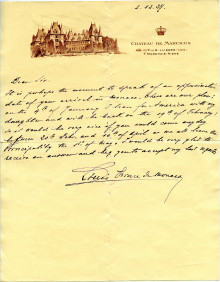 2.12.29.
CHATEAU DE MARCHAIS
Dear Sir,
It is perhaps the moment to speak of an approximative
date of your arrival in Monaco. Here are our plans:
on the 9th of January I leave for America with my
daughter and will be back on the 19th of February;
so it would be very nice if you could come any day
between 20th Feb. and 20th of April as we are from the
Principality the 1st of May. I should be very glad to
receive an answer and beg you to accept my best regards
Louis Prince de Monaco